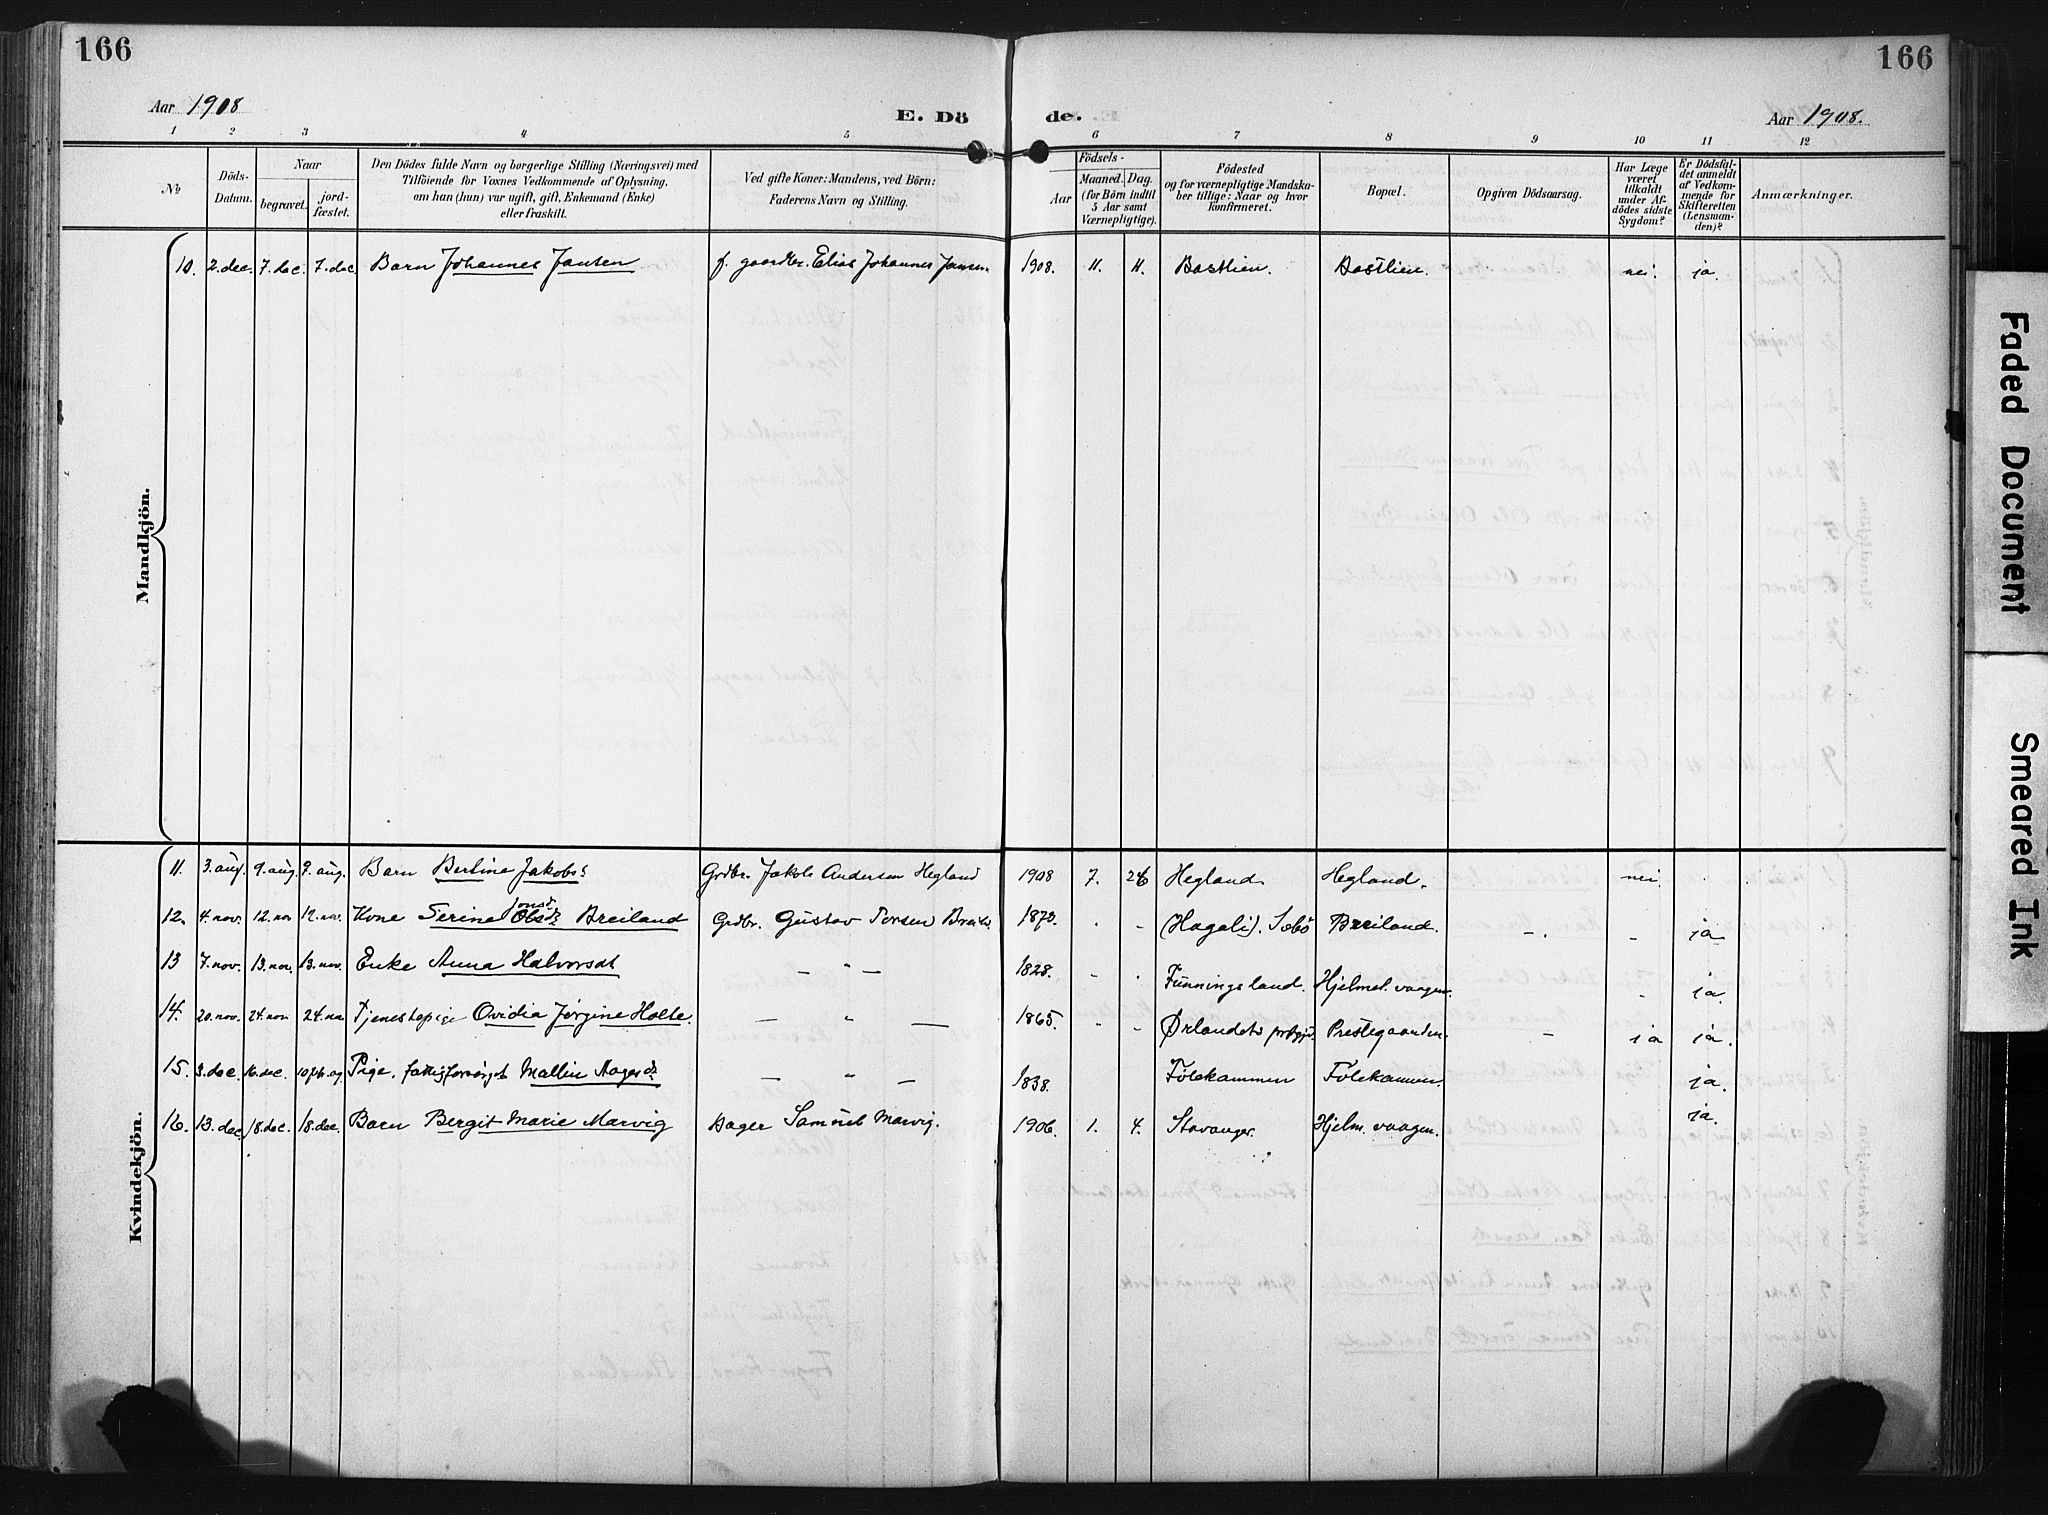 166
166
Aar 1908
E. Dö de.
Aar 1908.
1 2 3 4 5 6 7 8 9 10 11 12
No
Döds-
Datum.
Naar
begravet.
jord-
fæstet.
Den Dödes fulde Navn og borgerlige Stilling (Næringsvei) med
Tilföiende for Voxnes Vedkommende af Oplysning,
om han (hun) var ugift, gift, Enkemand (Enke)
eller fraskilt.
Ved gifte Koner: Mandens, ved Börn:
Faderens Navn og Stilling.
Födsels-
Aar
Maaned. Dag.
(for Börn indtil
5 Aar samt
Værnepligtige).
Födested
og for værnepligtige Mandska-
ber tillige: Naar og hvor
konfirmeret.
Bopæl.
Opgiven Dödsaarsag.
Har Læge
været
tilkaldt
under Af-
dödes sidste
Sygdom?
Er Dödsfal-
det anmeldt
af Vedkom-
mende for
Skifteretten
(Lensman-
den)?
Anmærkninger.
Mandkjön.
10. 2. dec. 7. dec. 7. dec. Barn Johannes Jansen f. gaardbr. Elias Johannes Jansen 1908. 11. 11. Bostlien. Bostlien. nei. ja.
Kvindekjön.
11. 3. aug. 9. aug. 9. aug. Barn Bertine Jakobs. Grdbr. Jakob Andersen Hegland 1908 7. 26 Hegland Hegland. nei.
Jonsd.
12. 4. nov. 12. nov 12. nov. Kone Serine Olsd. Breiland Grdbr. Gustav Torsen Breil. 1873. (Hagali). Sæbö Breiland. ja
13 7. nov. 13. nov. 13. nov. Enke Anna Halvorsdt — " — 1828. Funningsland. Hjelmel. vaagen. ja.
14. 20. nov. 24. nov 24. nov Tjenestepige Ovidia Jørgine Holte. — " — 1865. Ørlandets prstgjd. Prestegaarden. ja ja.
15. 3. dec. 16. dec. Pige, fattigforsörget Mallin Aagesd. — " — 1838. Fölekammen Fölekammen. ja.
16. 13. dec. 18. dec. 18. dec. Barn Bergit Marie Marvig Bager Samuel Marvig. 1906. 1. 4. Stavanger. Hjelm. vaagen. ja.
Faded Document
Smeared Ink